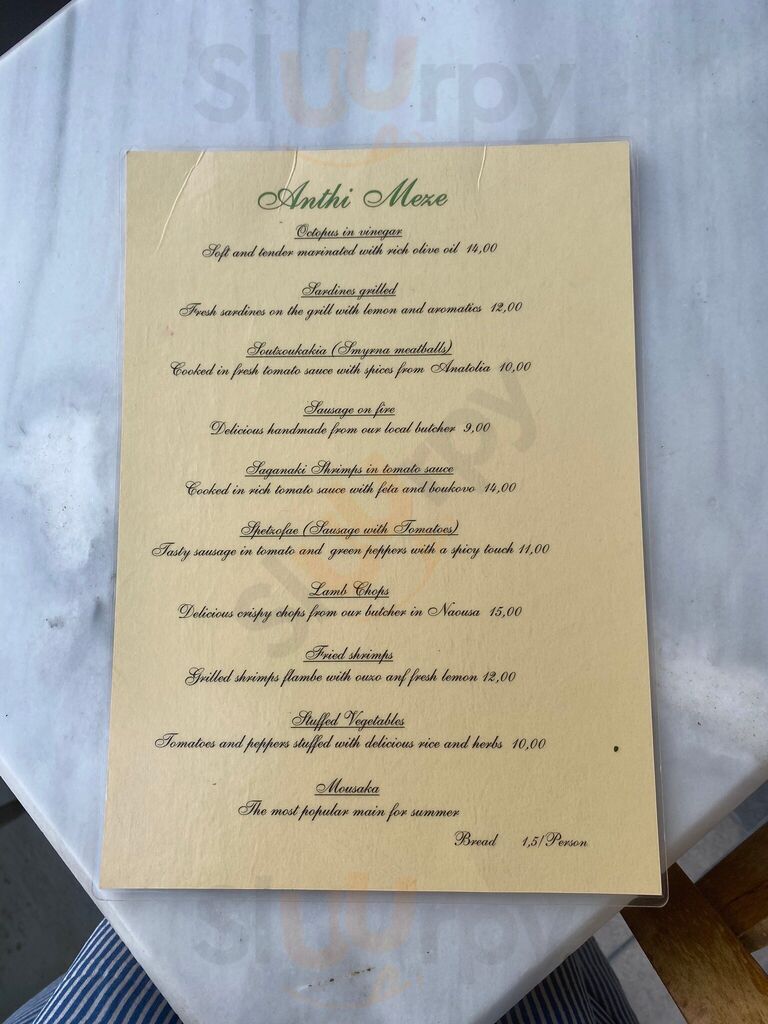 Sluurpy
Anthi Meze
Octopus in vinegar
Soft and tender marinated with rich olive oil 14,00
Sardines grilled
Fresh sardines on the grill with lemon and aromatics 12,00
Soutzoukakia (Smyrna meatballs)
Cooked in fresh tomato sauce with spices from Anatolia 10,00
Sausage on fire
Delicious handmade from our local butcher 9,00
Saganaki Shrimps in tomato sauce
Cooked in rich tomato sauce with feta and boukovo 14,00
Spetzofae (Sausage with Tomatoes)
Tasty sausage in tomato and green peppers with a spicy touch 11,00
Lamb Chops
Delicious crispy chops from our butcher in Naousa 15,00
Fried shrimps
Grilled shrimps flambe with ouzo anf fresh lemon 12,00
Stuffed Vegetables
Tomatoes and peppers stuffed with delicious rice and herbs 10,00
Mousaka
The most popular main for summer
Bread 1,5/Person
Sluurpy
Sluurpy